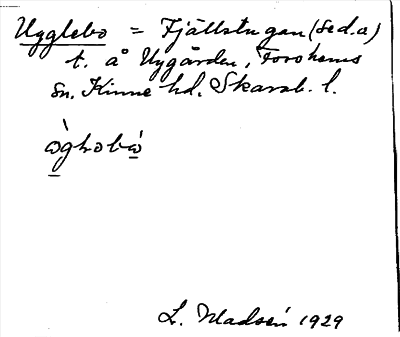 Ugglebo = Fjällstugan (se d.o)
t. å Nygården, Forshems
sn. Kinne hd. Skarab. l.
L. Madsén 1929